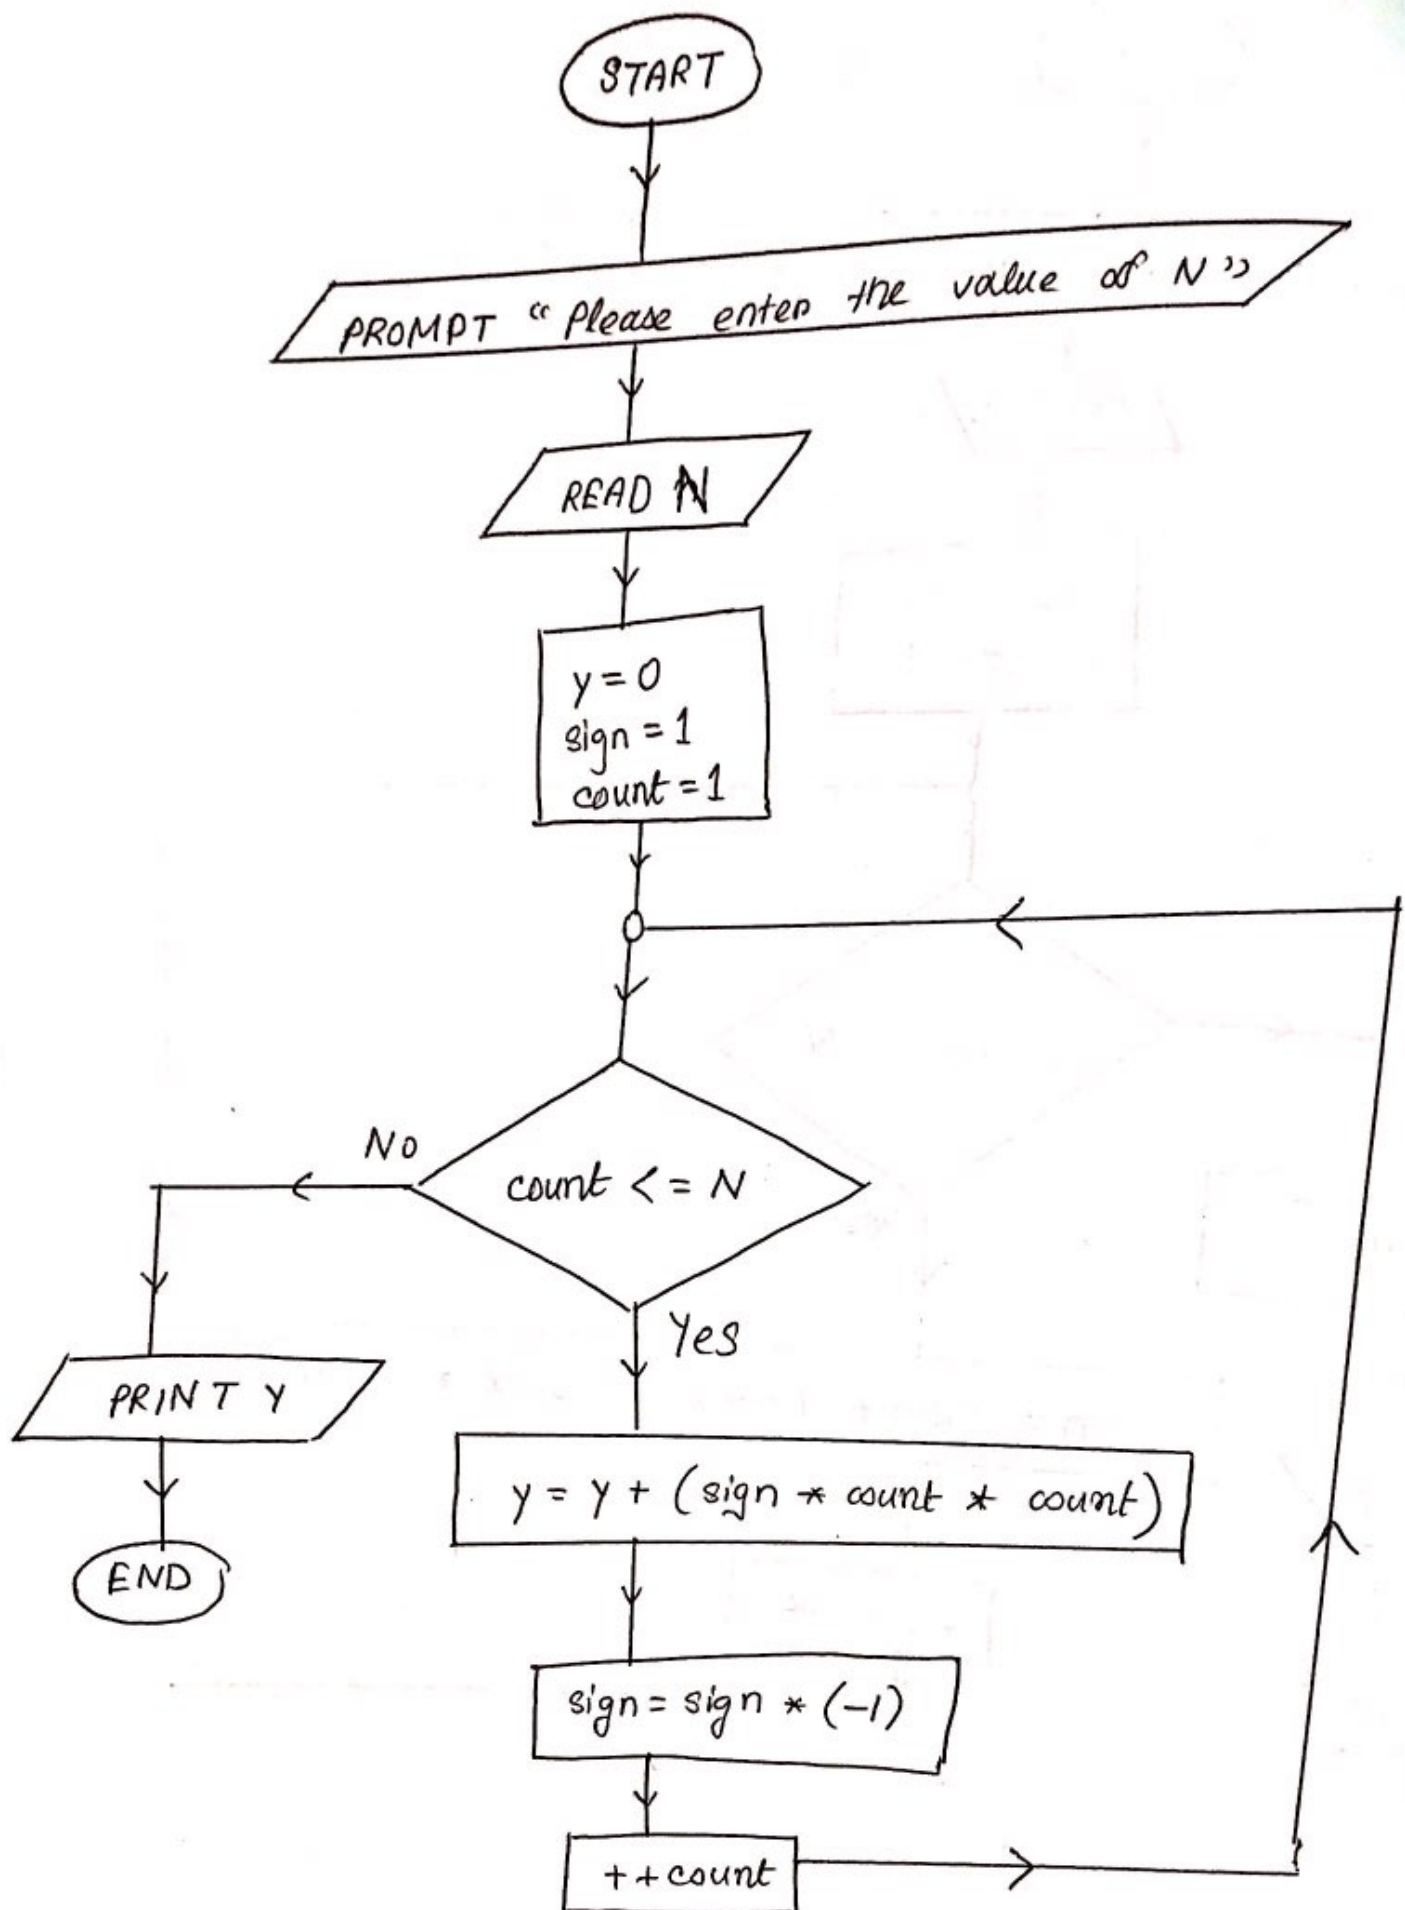 START
PROMPT "Please enter the value of N"
READ N
y = 0
sign = 1
count = 1
count <= N
No
Yes
PRINT Y
y = y + (sign * count * count)
END
sign = sign * (-1)
++count